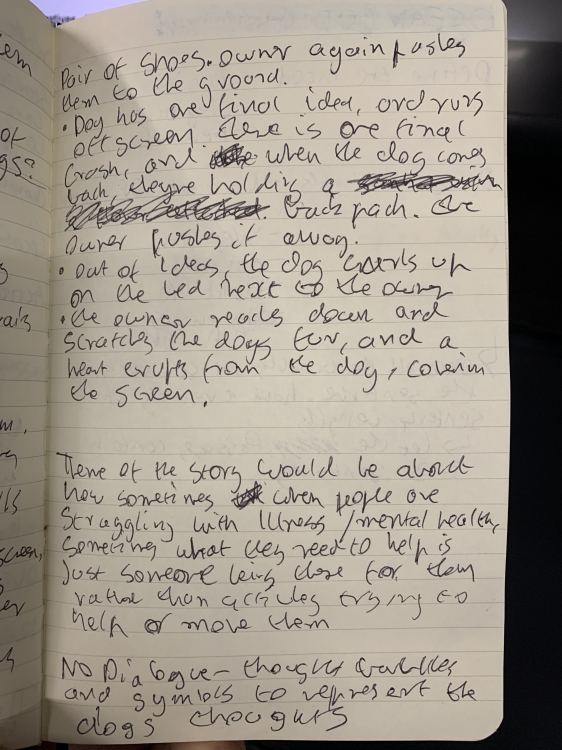 Pair of shoes. Owner again pushes
them to the ground.
• Dog has one final idea, and runs
off screen. there is one final
crash, and when the dog comes
back, theyre holding a
backpack. the
owner pushes it away.
• out of ideas, the dog curls up
on the bed next to the owner
• the owner reaches down and
scratches the dogs fur, and a
heart erupts from the dog, covering
the screen.
Theme of the story would be about
how sometimes when people are
struggling with illness/mental health,
sometimes what they need to help is
just someone being there for them
rather than actively trying to
help or move them
No Dialogue - thought bubbles
and symbols to represent the
dogs thoughts
em
of
gs?